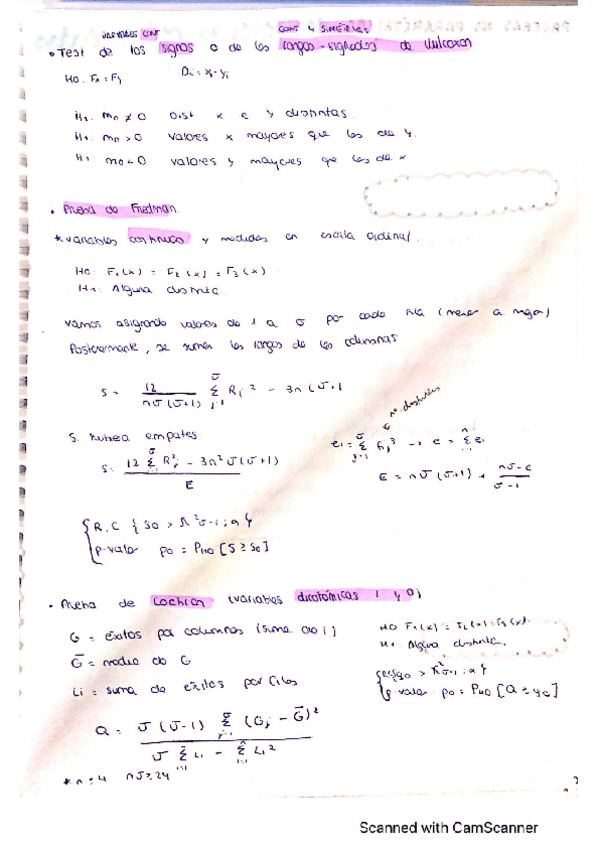 VARIABLES CONT
CONT Y SIMÉTRICAS
• Test de los signos o de los rangos-signados de Wilcoxon
H0: Fx = Fy
Di = xi - yi
H1: mD ≠ 0 Dist x e y distintas
H1: mD > 0 valores x mayores que los de y.
H1: mD < 0 valores y mayores que los de x
• Prueba de Fredman
* variables continuas y medidas en escala ordinal.
H0: F1(x) = F2(x) = F3(x)
H1: Alguna distinta
Vamos asignando valores de 1 a J por cada fila (menor a mayor)
Posteriormente, se suman los rangos de las columnas
S = 12 / nJ(J+1) Σ Rj² - 3n(J+1
Si hubiera empates:
S = 12 Σ Rj² - 3n²J(J+1) / E
nº distintos
ei = Σ hij³ → e = Σ ei
E = nJ(J+1) + nJ-e / J-1
R.C { S0 > χ²J-1;α }
p-valor p0 = PH0 [S ≥ S0]
• Prueba de Cochran (variables dicotómicas 1 y 0)
G = éxitos por columnas (suma de 1)
H0: F1(x) = F2(x) = F3(x).
H1: Alguna distinta.
Ḡ = media de G
Li = suma de éxitos por filas
p-valor p0 = PH0 [Q ≥ q0]
Q = J(J-1) Σ (Gj - Ḡ)² / J Σ Li - Σ Li²
* n ≥ 4 nJ ≥ 24
Scanned with CamScanner